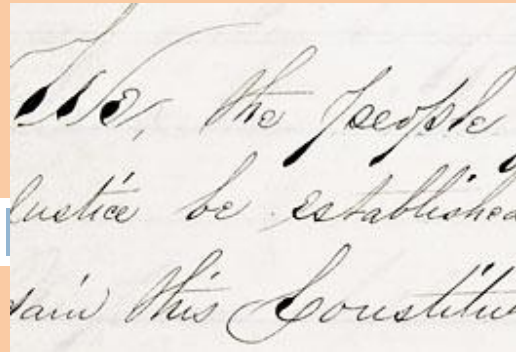 We, the people
Justice be established
this Constitu